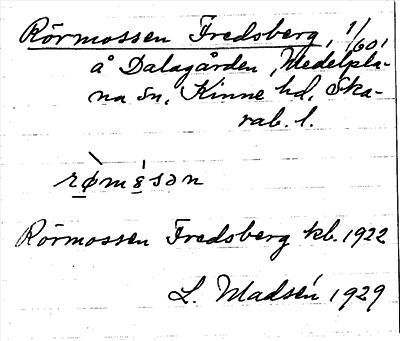 Rörmossen Fredsberg, 1/60,
å Dalagården, Medelpla-
na sn, Kinne hd, Ska-
rab. l.
rø̀mósən
Rörmossen Fredsberg kb. 1922
L. Madsén 1929